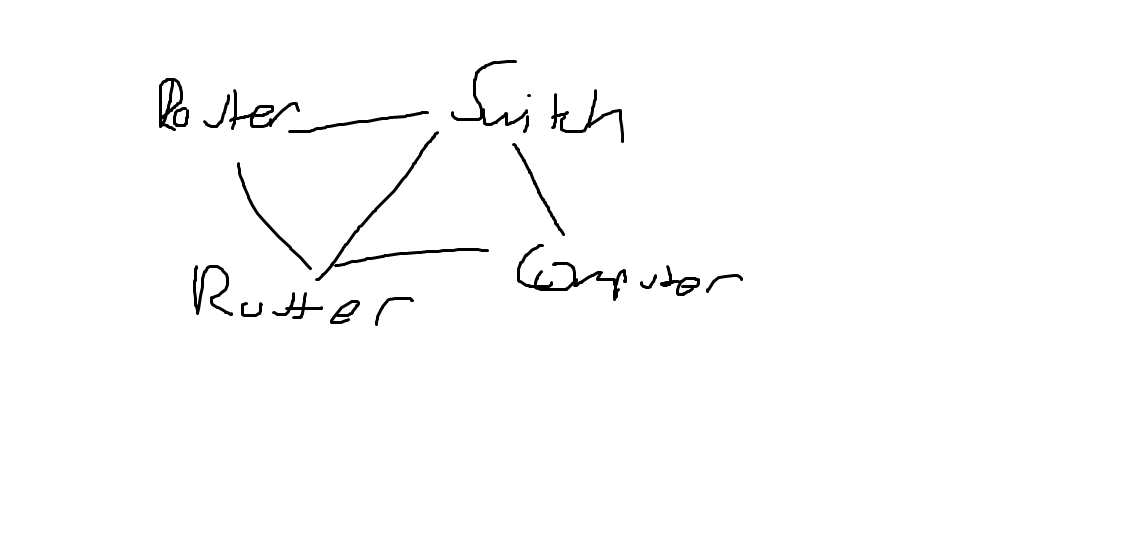 Router Switch
Rutter Computer